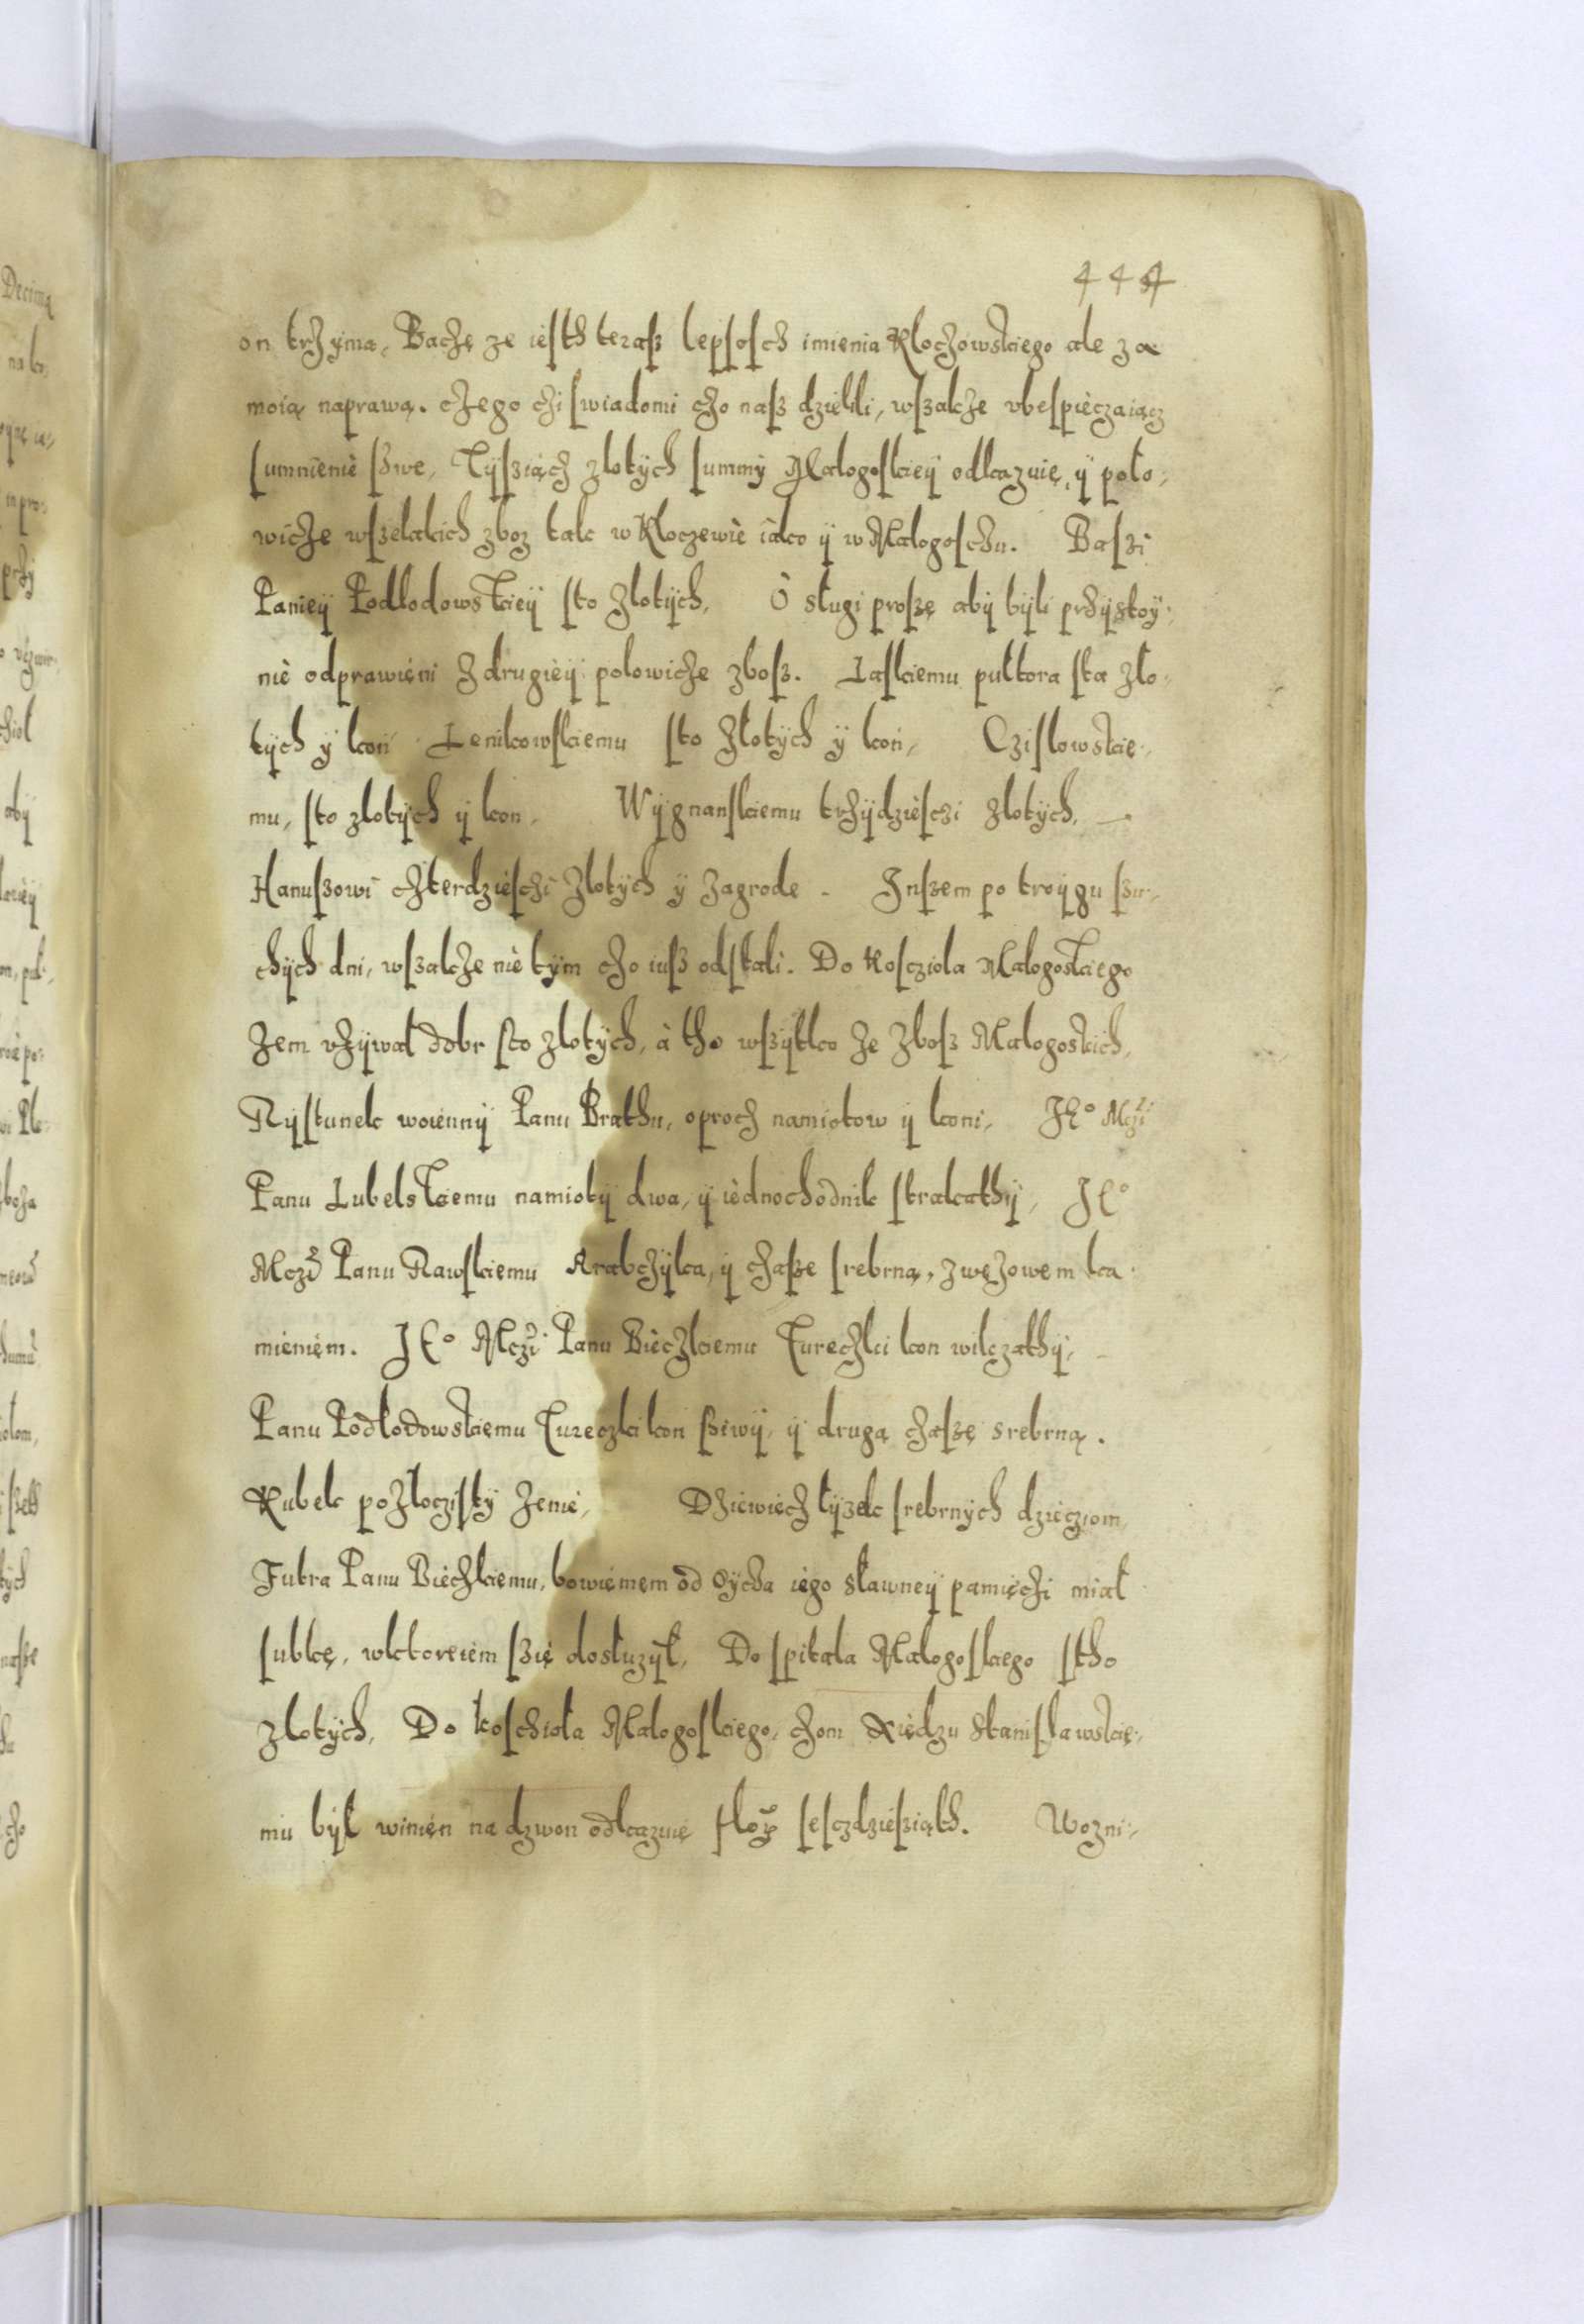 444
on trzÿma, Baczę ze iesth terasz lepsosch imienia Kloczowskiego ale za
moią naprawą. czego czi swiadomi czo nasz dzielili, wszakze vbespieczaiącz
sumnienie szwe, Tÿsziącz zlotÿch summÿ Malogoskieÿ odkazuię, ÿ poło,
wicze wszelakich zboz tak w Kloczewie iako ÿ w Malogoschu. Baszi
Panieÿ Podlodowskieÿ sto zlotÿch, O sługi proszę abÿ bÿli przÿstoÿ,
nie odprawieni z drugieÿ polowicze zbosz. Laskiemu pułtora sta zło,
tÿch ÿ kon Lenikowskiemu sto złotÿch ÿ kon, Czislowskie,
mu, sto zlotÿch ÿ kon, Wÿgnanskiemu trzÿdziesczi zlotÿch,
Hanuszowi czterdzieschi zlotÿch ÿ zagrode Inszem po troÿgu szu,
chÿch dni, wszakze nie tÿm czo iusz odstali. Do kosczioła Malogoskiego
zem vzÿwał dobr sto zlotÿch, à tho wszÿtko ze zbosz Malogoskich,
Rÿstunek woiennÿ Panu Brathu, oprocz namiotow ÿ koni, JE° Mczi
Panu Lubelskiemu namiotÿ dwa, ÿ iednochodnik strakathÿ, JE°
Mczi Panu Rawskiemu Arabczÿka, ÿ czasze srebrną, z wężowem ka
mieniem. JE° Mczi Panu Bieczkiemu Tureczki kon wilczathÿ,
Panu Podlodowskiemu Tureczki kon sziwÿ, ÿ drugą czaszę srebrną.
Kubek pozloczistÿ zenie, Dziewiecz łÿzek srebrnÿch dziecziom,
Futra Panu Bieczkiemu, bowiemem od oÿcza iego sławneÿ pamięczi miał
subkę, wktoreiem szię dosłuzÿł, Do spitala Malogoskiego stho
zlotÿch, Do koschioła Malogoskiego, czom Xiędzu Stanisławskie,
mu bÿł winien na dzwon odkazuię sesczdziesziąth. Wozni,